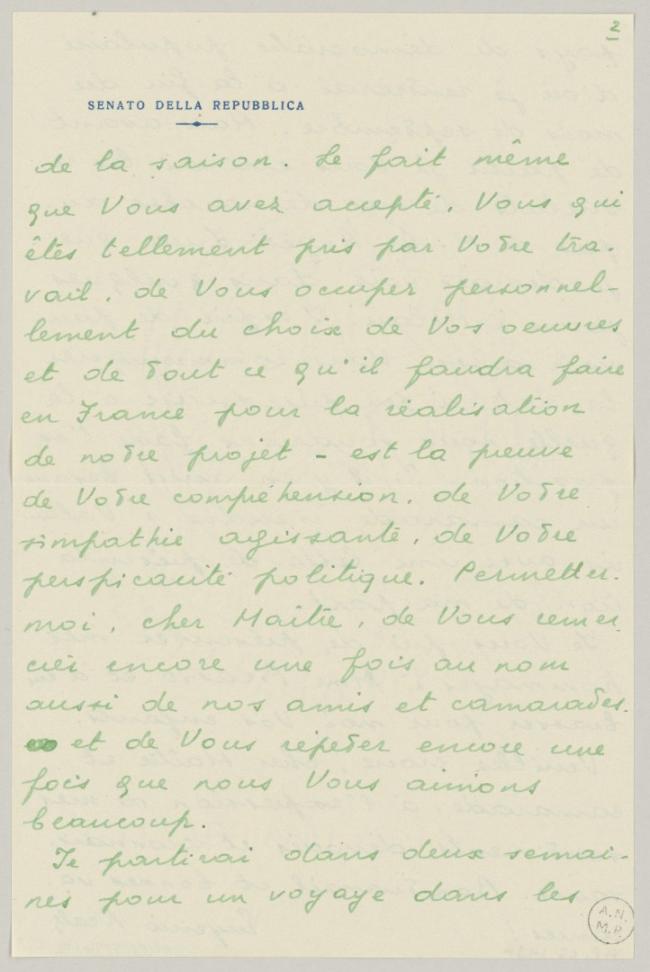 2
SENATO DELLA REPUBBLICA
de la saison. Le fait même
que Vous avez accepté, Vous qui
êtes tellement pris par Votre tra-
vail, de Vous occuper personnel-
lement du choix de Vos oeuvres
et de tout ce qu'il faudra faire
en France pour la réalisation
de notre projet - est la preuve
de Votre compréhension, de Votre
simpathie agissante, de Votre
perspicacité politique. Permettez-
moi, cher Maître, de Vous remer-
cier encore une fois au nom
aussi de nos amis et camarades
et de Vous répéter encore une
fois que nous Vous aimons
beaucoup.
Je partirai dans deux semai-
nes pour un voyage dans les
A.N.
M.P.